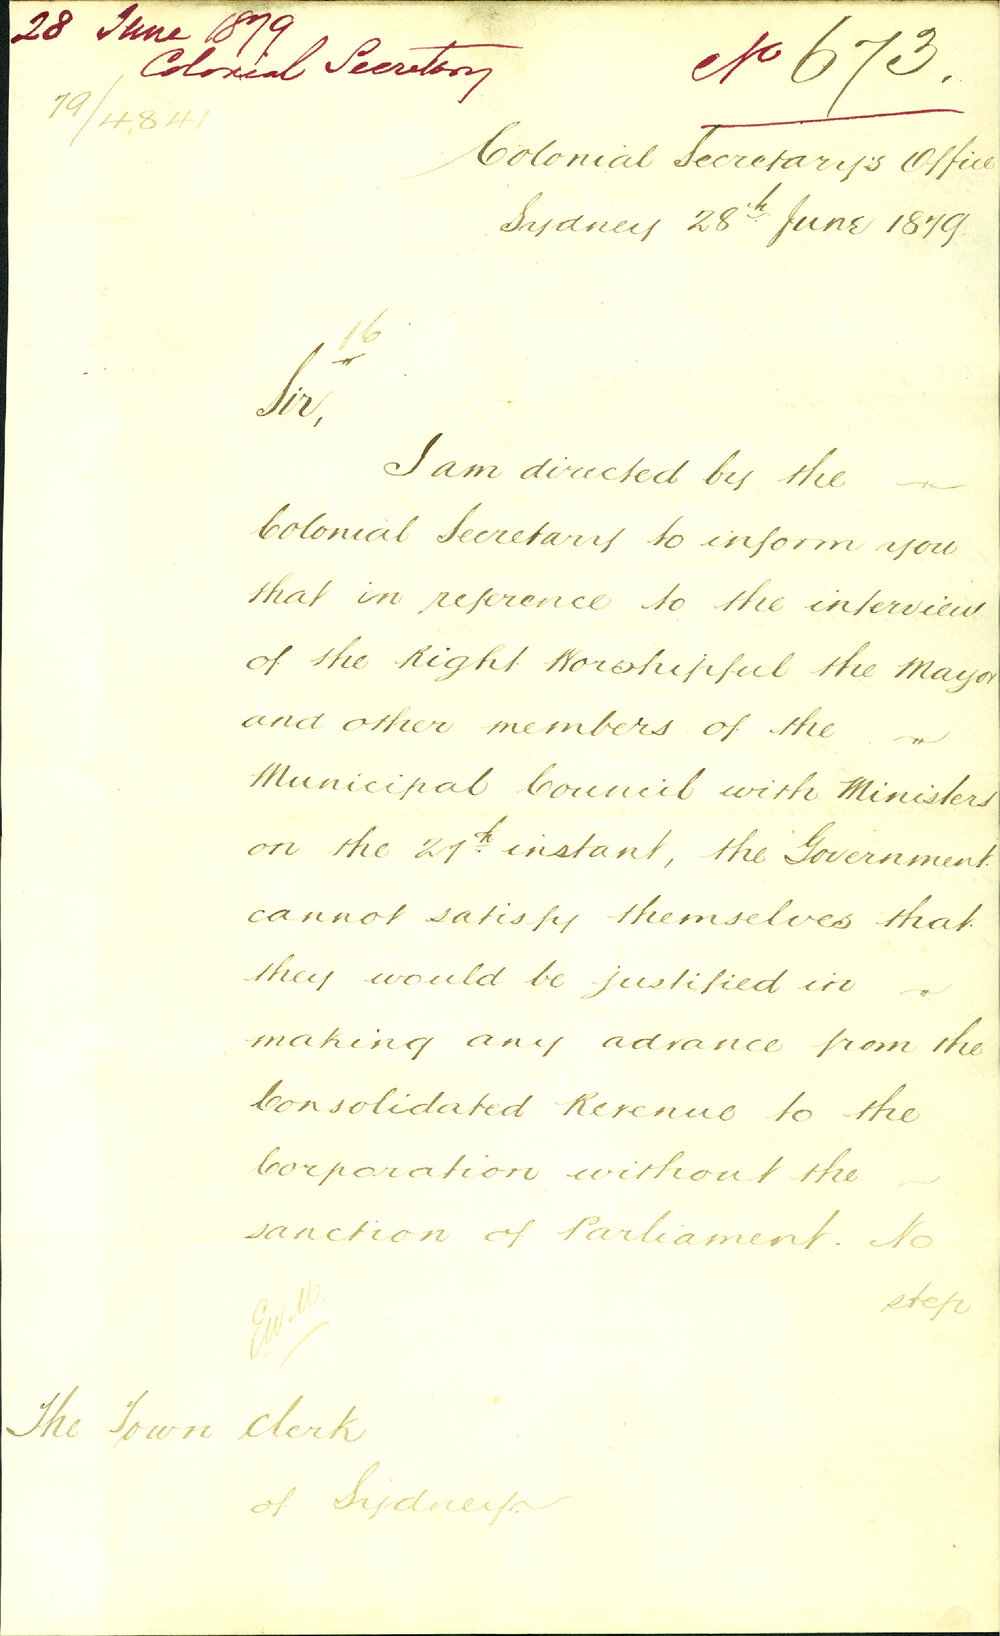 28 June 1879
Colonial Secretary
No 673.
79/4841
Colonial Secretary's Office
Sydney 28th June 1879
16
Sir,
I am directed by the
Colonial Secretary to inform you
that in reference to the interview
of the Right Worshipful the Mayor
and other members of the
Municipal Council with Ministers
on the 27th instant, the Government
cannot satisfy themselves that
they would be justified in
making any advance from the
Consolidated Revenue to the
Corporation without the
sanction of Parliament. No
step
The Town Clerk
of Sydney